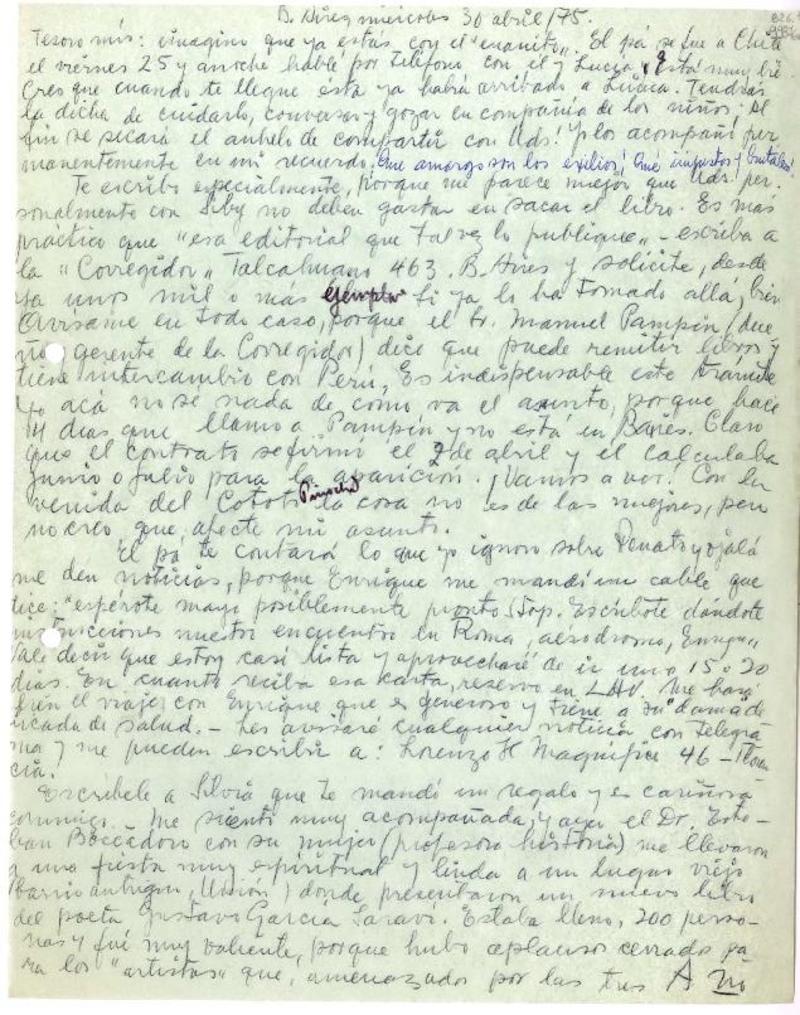 B. Aires miércoles 30 abril/75.
Tesoro mío: imagino que ya estás con el "enanito". El pá se fue a Chile
el viernes 25 y anoche hablé por Teléfono con él y Lucía. Está muy bien
Creo que cuando te llegue ésta ya habrá arribado a Lúaca. Tendrás
la dicha de cuidarlo, conversar y gozar en compañía de los niños. Al
fin se secará el anhelo de compartir con Uds! Yo los acompañé per
manentemente en mi recuerdo. ¡Qué amargos son los exilios! Qué injustos y brutales!
Te escribo especialmente, porque me parece mejor que Uds. per-
sonalmente con Siby no deben gastar en sacar el libro. Es más
práctico que "esa editorial que Tal vez lo publique" - escriba a
la "Corregidor" Talcahuano 463, B. Aires y solicite, desde
ya unos mil o más ejemplar. Si ya lo ha Tomado allá, bien
Avísame en todo caso, porque el Sr. Manuel Pampín (due
ño gerente de la Corregidor) dice que puede remitir libros y
tiene intercambio con Perú. Es indispensable este trámite
Yo acá no sé nada de cómo va el asunto, porque hace
14 días que llamo a Pampín y no está en Baires. Claro
que el contrato se firmó el 2 de abril y él calculaba
junio o julio para la aparición. ¡Vamos a ver! Con la
venida del Cototo Pinocho la cosa no es de las mejores, pero
no creo que afecte mi asunto.
El pá te contará lo que yo ignoro sobre Renato y ojalá
me den noticias, porque Enrique me mandó un cable que
dice: "espérote mayo posiblemente pronto Stop. Escríbote dándote
instrucciones nuestro encuentro en Roma, aeródromo, Enrique"
Vale decir que estoy casi lista y aprovecharé de ir unos 15 o 20
días. En cuanto reciba esa carta, reservo en LAV. Me hará
bien el viaje con Enrique que es generoso y tiene a su dama de
licada de salud. - Les avisaré cualquier noticia con Telegra
ma y me pueden escribir a: Lorenzo Il Magnífico 46 - Floren
cia.
Escríbele a Silvia que te mandó un regalo y es cariñosa
conmigo. - Me siento muy acompañada, y ayer el Dr. Este-
ban Boccadoro con su mujer (profesora historia) me llevaron
a una fiesta muy espiritual y linda a un lugar viejo
(barrio antiguo, Unión) donde presentaron un nuevo libro
del poeta Gustavo García Saraví. Estaba lleno, 200 perso-
nas y fué muy valiente, porque hubo aplausos cerrados pa
ra los "artistas" que, amenazados por las tres A no